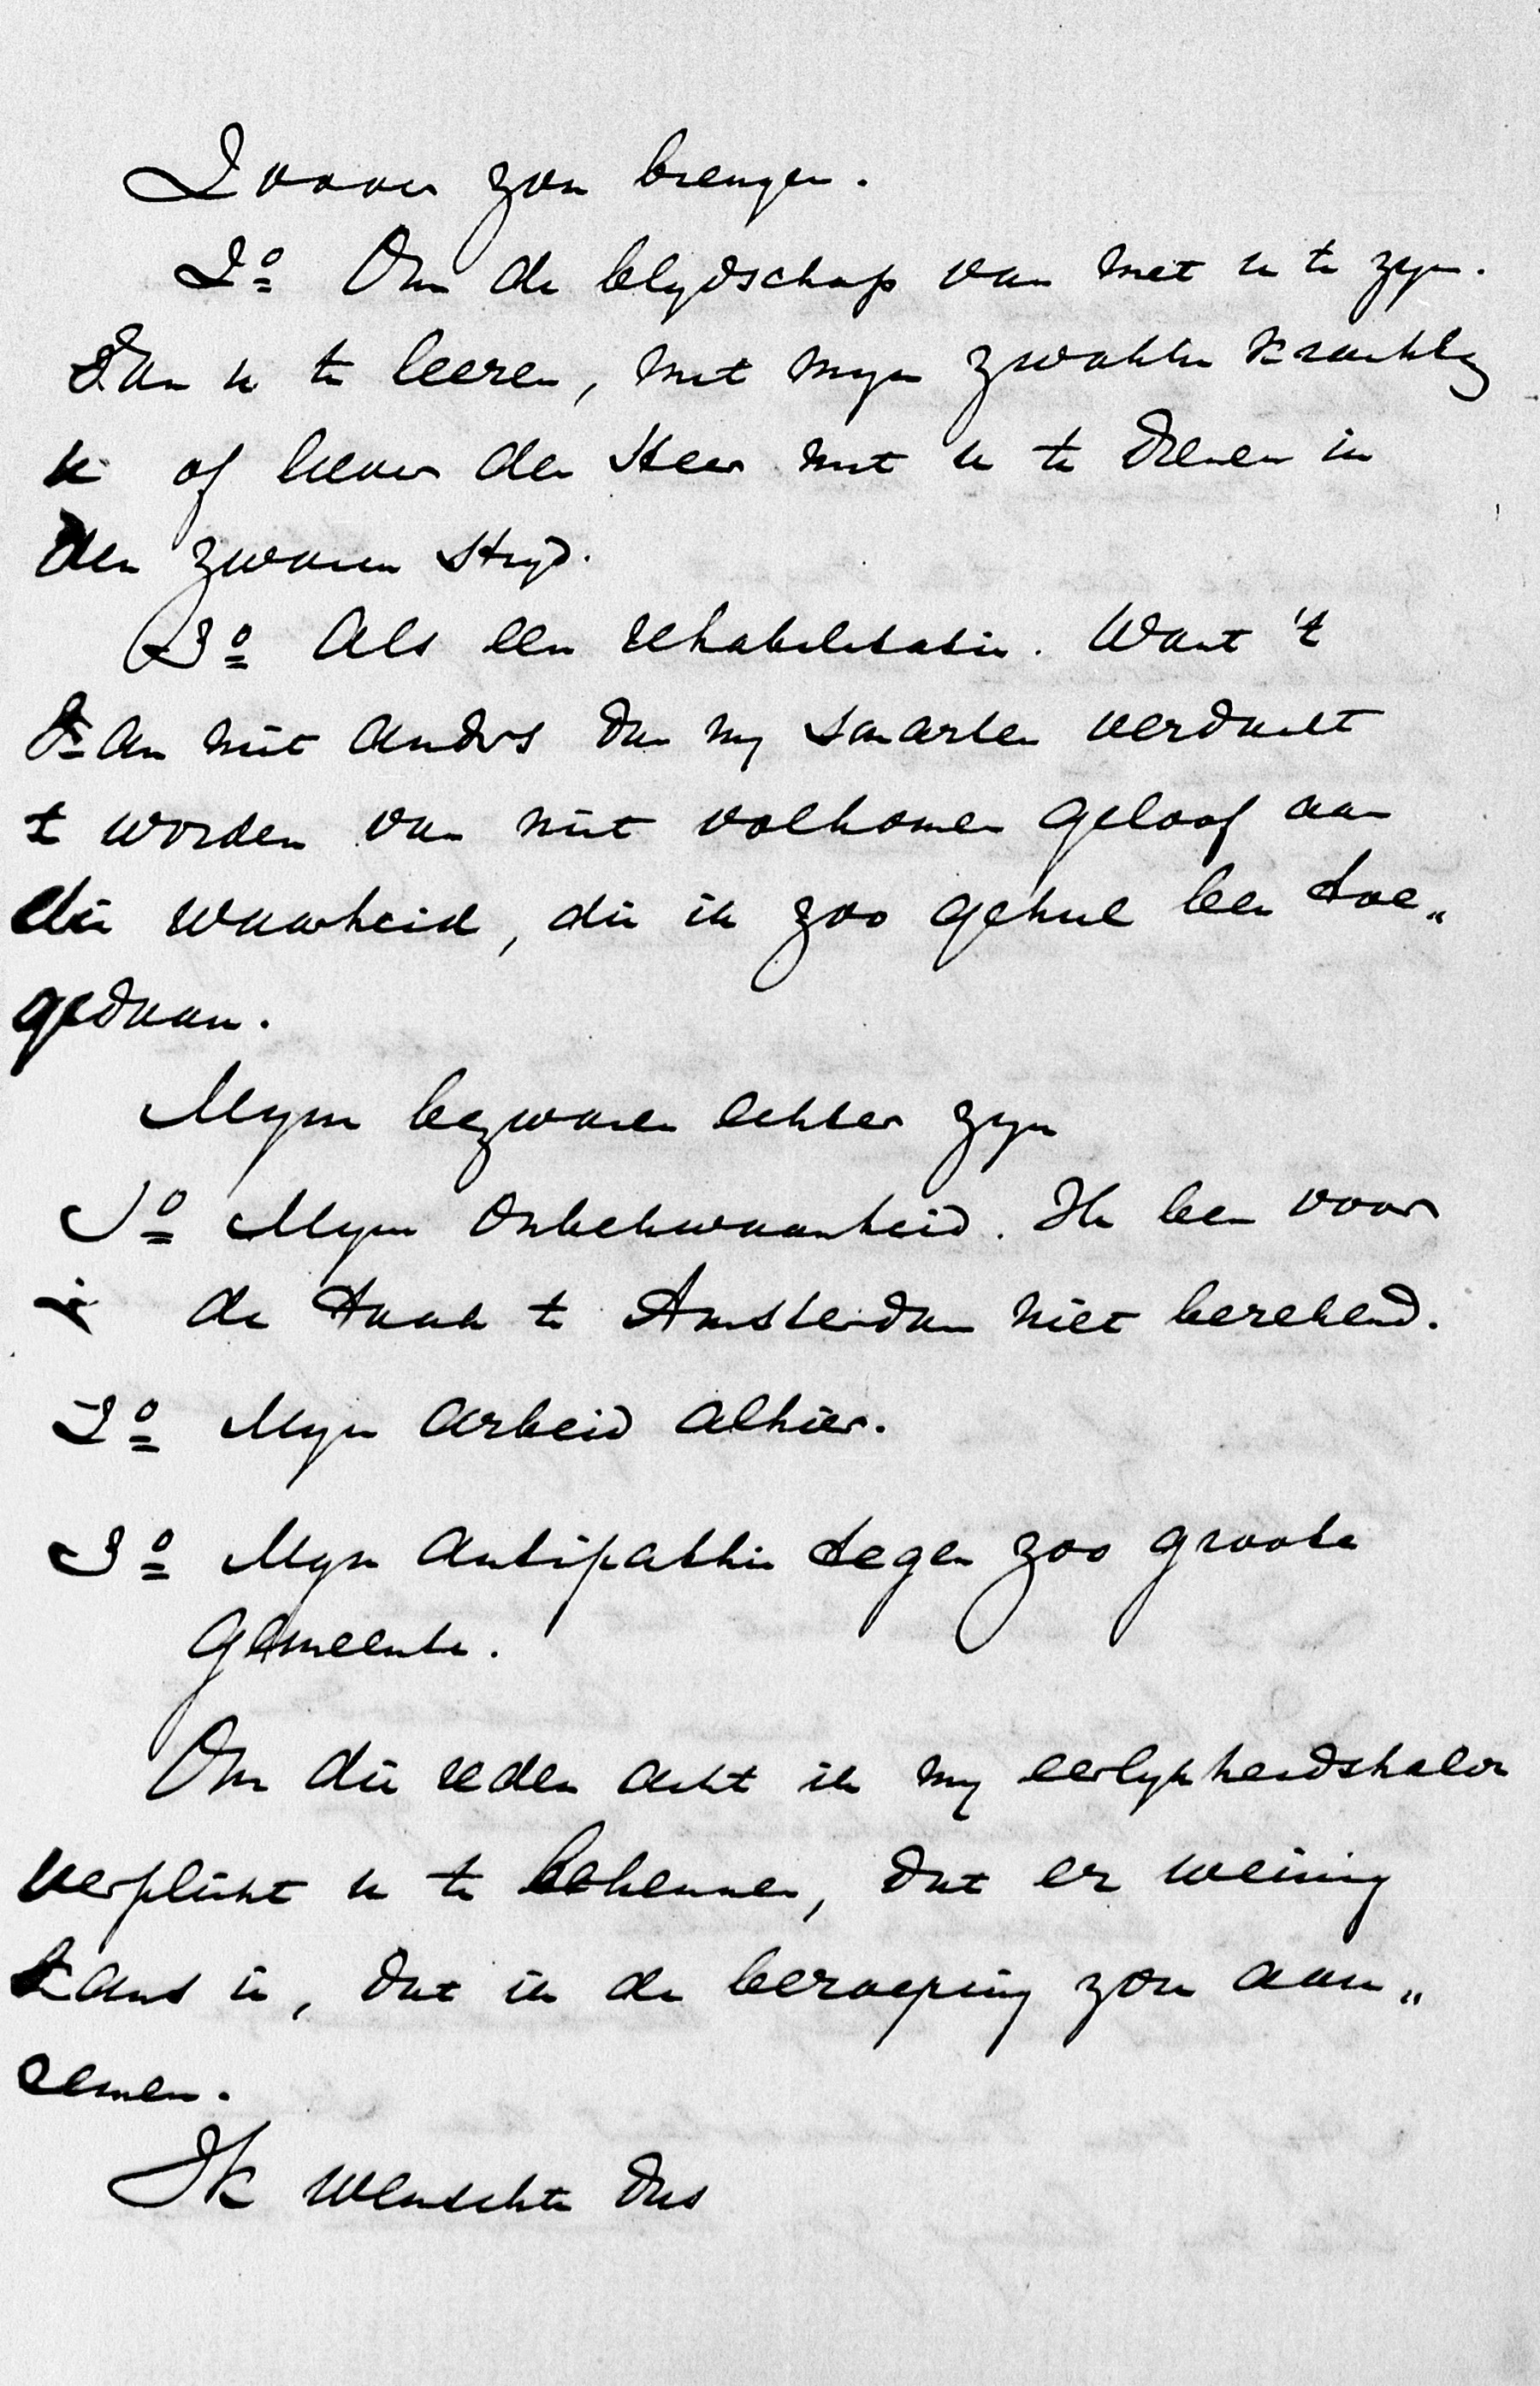 zou brengen.
2º Om de blydschap van met u te zyn.
Van u te leeren, met myn zwakke krachten
u of liever den Heer met u te dienen in
den zwaren stryd.
3º Als een rehabilitatie. Want 't
kan niet anders dan my smarten verdacht
te worden van niet volkomen geloof aan
die waarheid, die ik zoo geheel ben toe„
gedaan.
Myne bezwaren echter zyn
1º Myne onbekwaamheid. Ik ben voor
de taak te Amsterdam niet berekend.
2º Myn arbeid alhier.
3º Myn antipathie tegen zoo groote
gemeente.
Om die reden acht ik my eerlykheidshalve
verplicht u te bekennen, dat er weinig
kans is, dat ik de beroeping zou aan„
nemen.
Ik wenschte dus